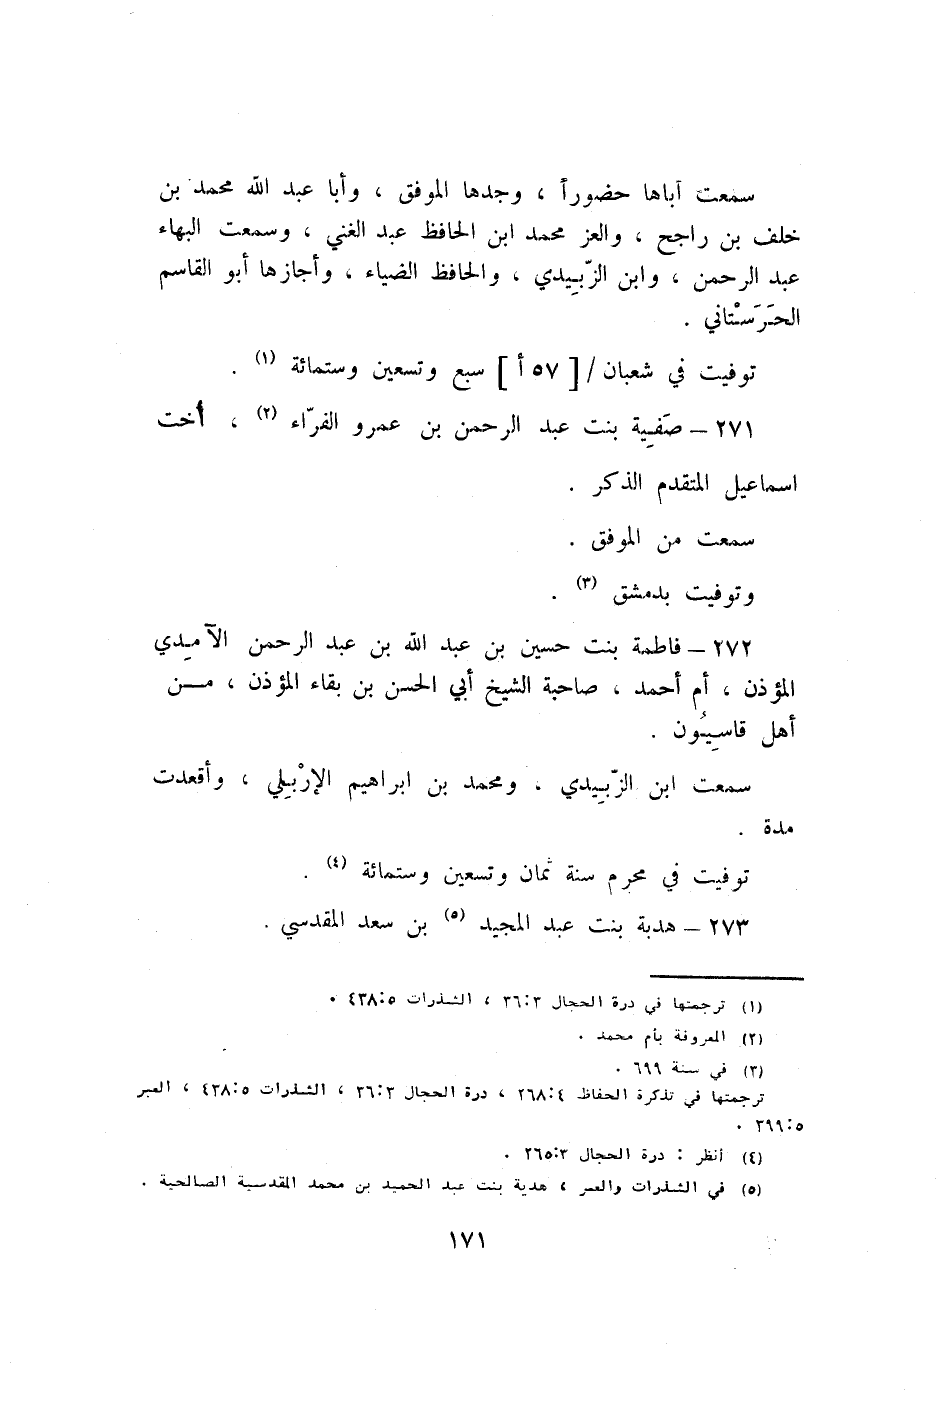 سمعت أباها حضوراً ، وجدها الموفق ، وأبا عبد الله محمد بن
خلف بن راجح ، والعز محمد ابن الحافظ عبد الغني ، وسمعت البهاء
عبد الرحمن ، وابن الزّبِيدي ، والحافظ الضياء ، وأجازها أبو القاسم
الحَرَسْتاني .
توفيت في شعبان / [ ٥٧ أ ] سبع وتسعين وستمائة (١) .
٢٧١ – صَفِية بنت عبد الرحمن بن عمرو الفرّاء (٢) ، أخت
اسماعيل المتقدم الذكر .
سمعت من الموفق .
وتوفيت بدمشق (٣) .
٢٧٢ – فاطمة بنت حسين بن عبد الله بن عبد الرحمن الآمِدي
المؤذن ، أم أحمد ، صاحبة الشيخ أبي الحسن بن بقاء المؤذن ، مـن
أهل قاسِيُون .
سمعت ابن الزّبِيدي ، ومحمد بن ابراهيم الإرْبِلي ، وأقعدت
مدة .
توفيت في محرم سنة ثمان وتسعين وستمائة (٤) .
٢٧٣ – هدبة بنت عبد المجيد (٥) بن سعد المقدسي .
(١) ترجمتها في درة الحجال ٣٦:٣ ، الشذرات ٤٣٨:٥ .
(٢) المعروفة بأم محمد .
(٣) في سنة ٦٩٩ .
ترجمتها في تذكرة الحفاظ ٢٦٨:٤ ، درة الحجال ٣٦:٣ ، الشذرات ٤٣٨:٥ ، العبر
٣٩٩:٥ .
(٤) أنظر : درة الحجال ٢٦٥:٣ .
(٥) في الشذرات والعبر ، هدية بنت عبد الحميد بن محمد المقدسية الصالحية .
١٧١